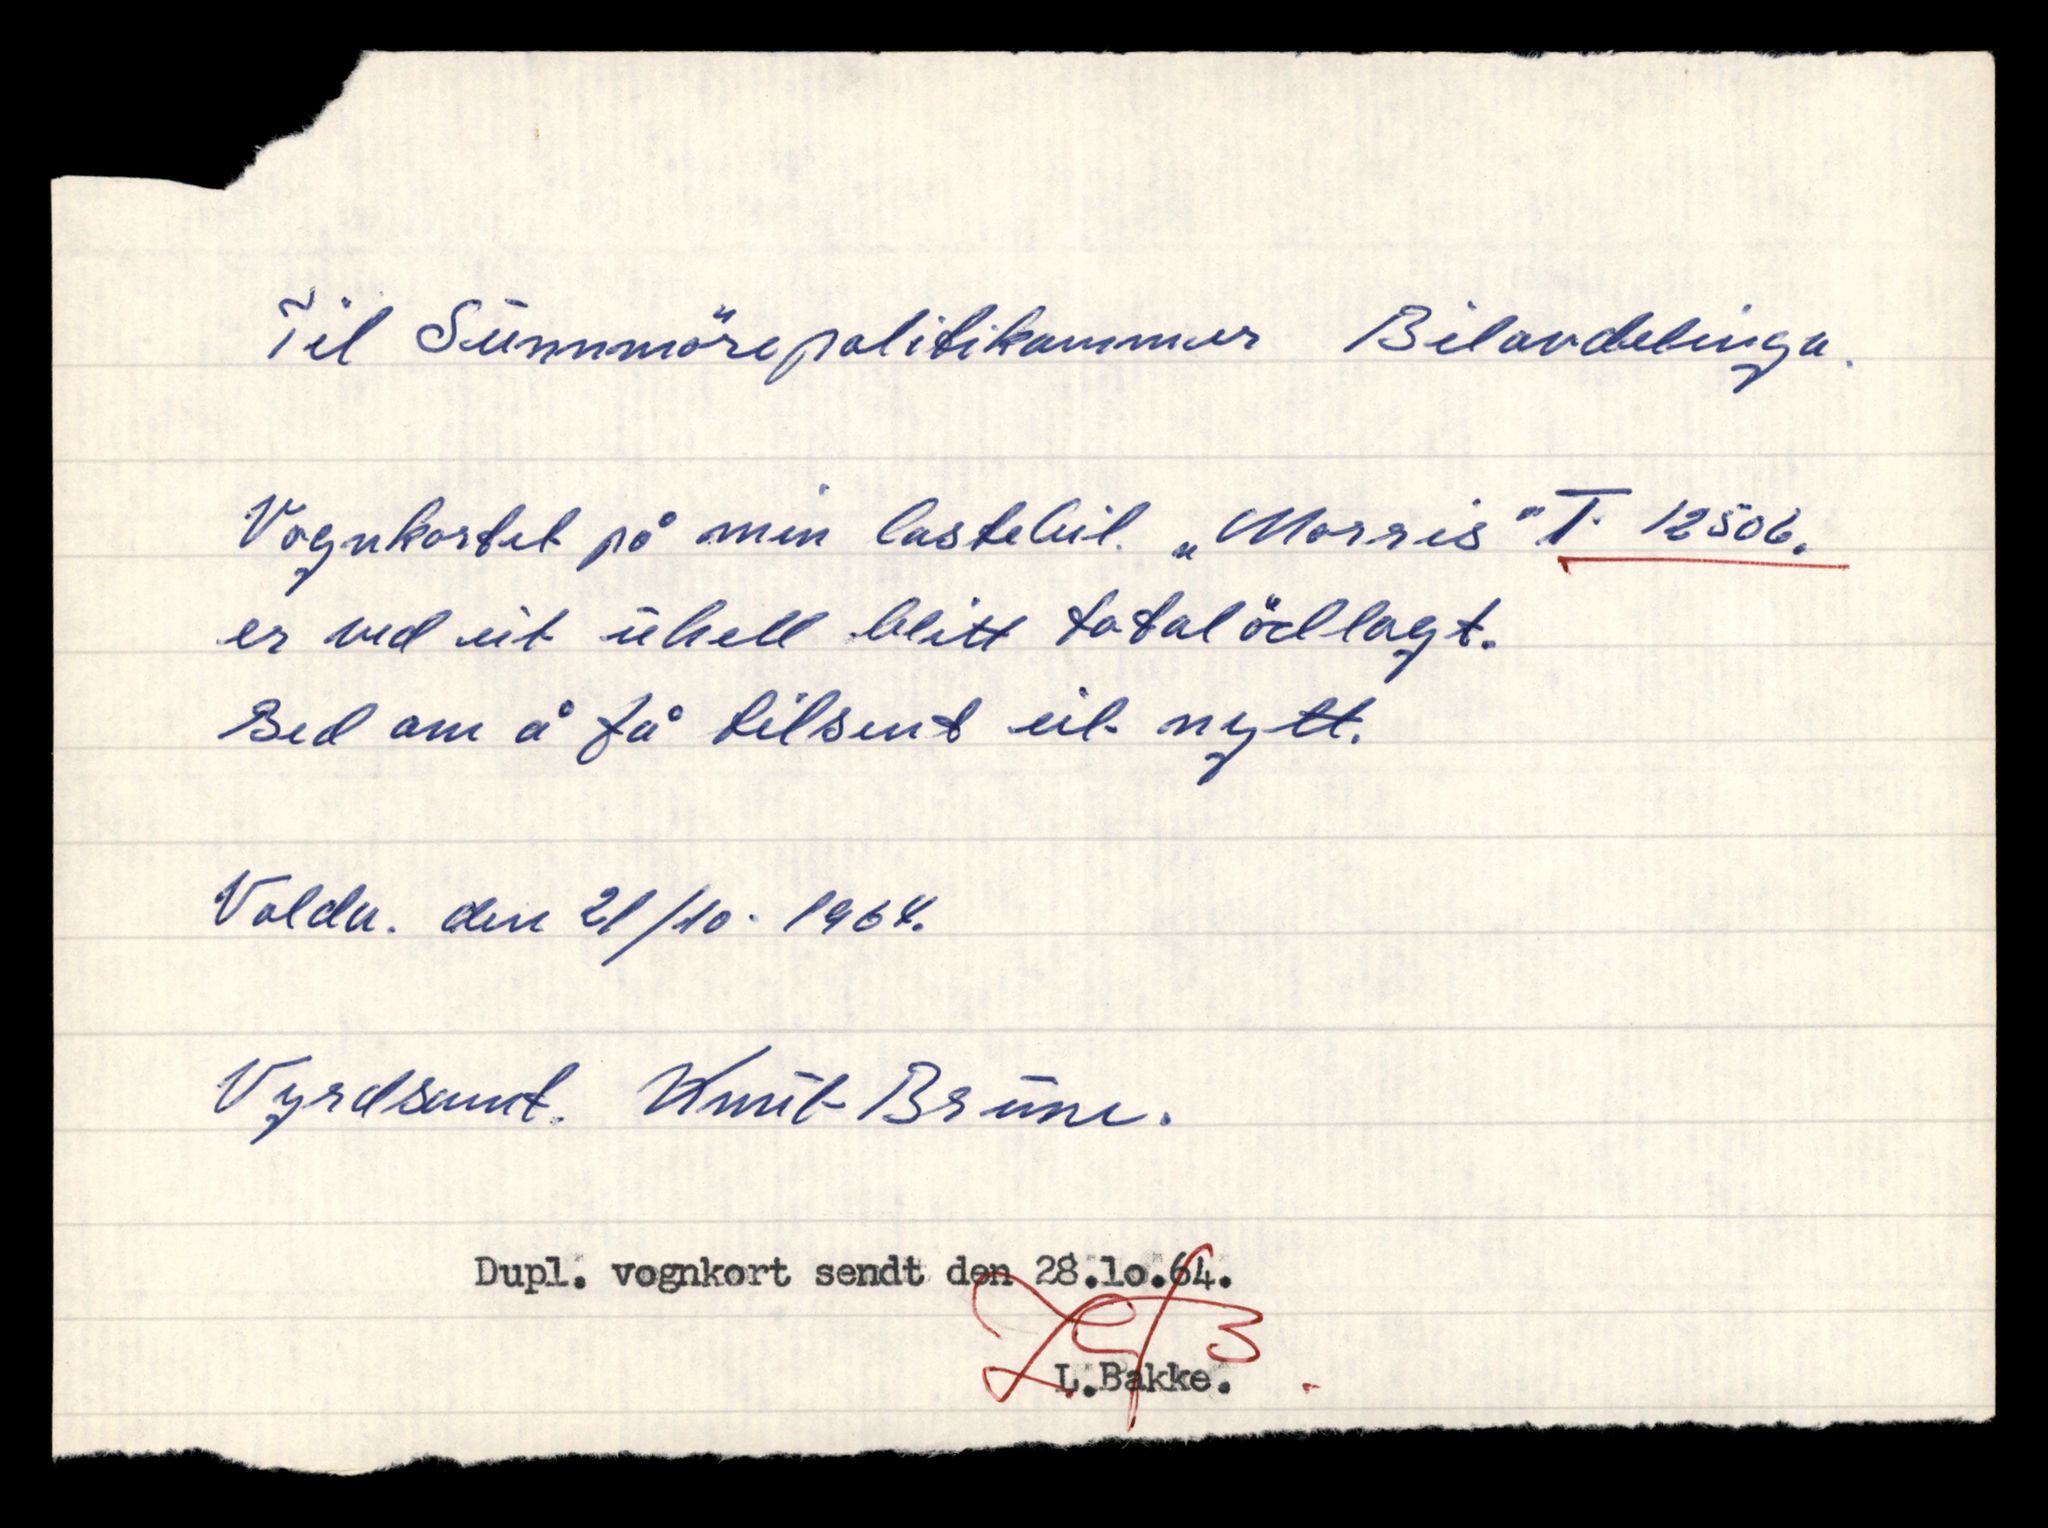 Til Sunnmöre politikammer Bilavdelinga.
Vognkortet på min lastebil. „Morris“ T. 12506.
er ved eit uhell blitt totalödlagt.
Bed om å få tilsent eit nytt.
Volda. den 21/10. 1964.
Vyrdsamt. Knut Brune.
Dupl. vognkort sendt den 28.10.64.
L.Bakke.